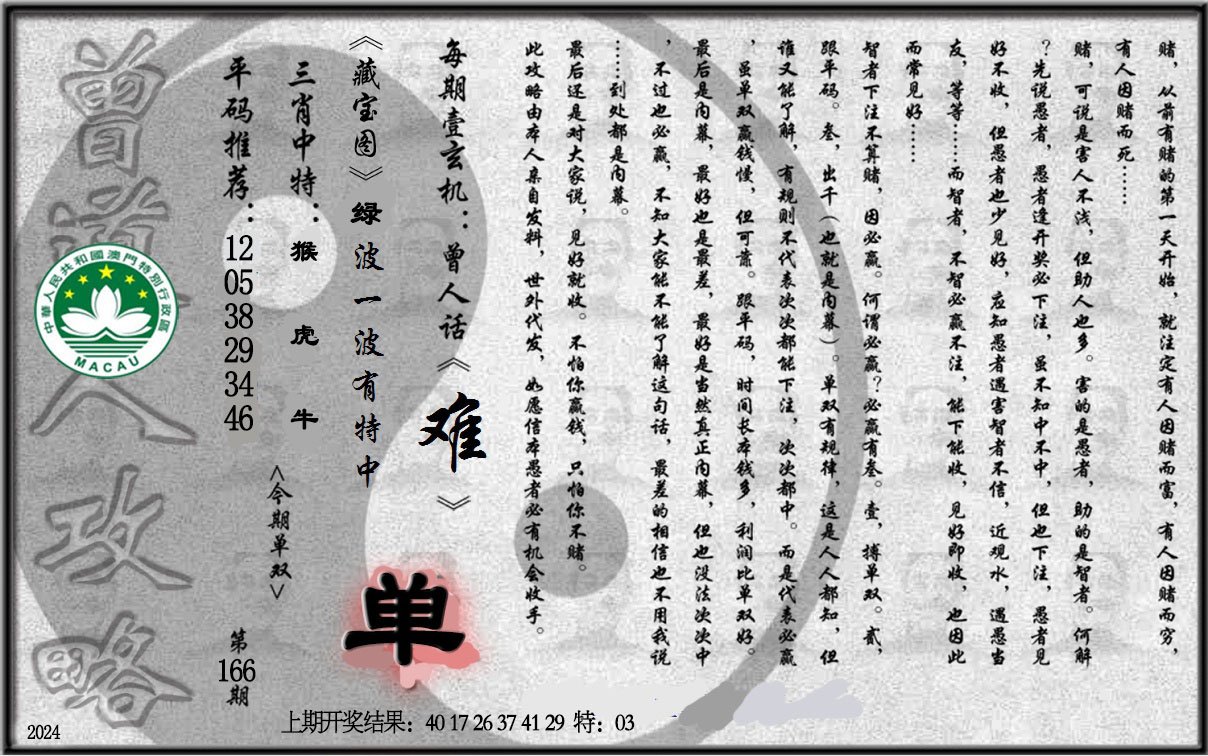 赌，从前有赌的第一天开始，就注定有人因赌而富，有人因赌而穷，
有人因赌而死……
赌，可说是害人不浅，但助人也多。害的是愚者，助的是智者。何解
？先说愚者，愚者逢开奖必下注，虽不知中不中，但也下注，愚者见
好不收，但愚者也少见好，应知愚者遇害智者不信，近观水，遇愚当
友，等等……而智者，不智必赢不注，能下能收，见好即收，也因此
而常见好……
智者下注不算赌，因必赢。何谓必赢？必赢有叁。壹，搏单双。贰，
跟平码。叁，出千（也就是内幕）。单双有规律，这是人人都知，但
谁又能了解，有规则不代表次次都能下注，次次都中。而是代表必赢
，虽单双赢钱慢，但可靠。跟平码，时间长本钱多，利润比单双好。
最后是内幕，最好也是最差，最好是当然真正内幕，但也没法次次中
，不过也必赢，不知大家能不能了解这句话，最差的相信也不用我说
……到处都是内幕。
最后还是对大家说，见好就收。不怕你赢钱，只怕你不赌。
此攻略由本人亲自发料，世外代发，如愿信本愚者必有机会收手。
每期壹玄机：曾人话《难》
《藏宝图》绿波一波有特中
三肖中特：猴 虎 牛
<今期单双>
单
平码推荐：12 05 38 29 34 46
第166期
曾道人攻略
中華人民共和國澳門特別行政區
MACAU
上期开奖结果：40 17 26 37 41 29 特：03
2024